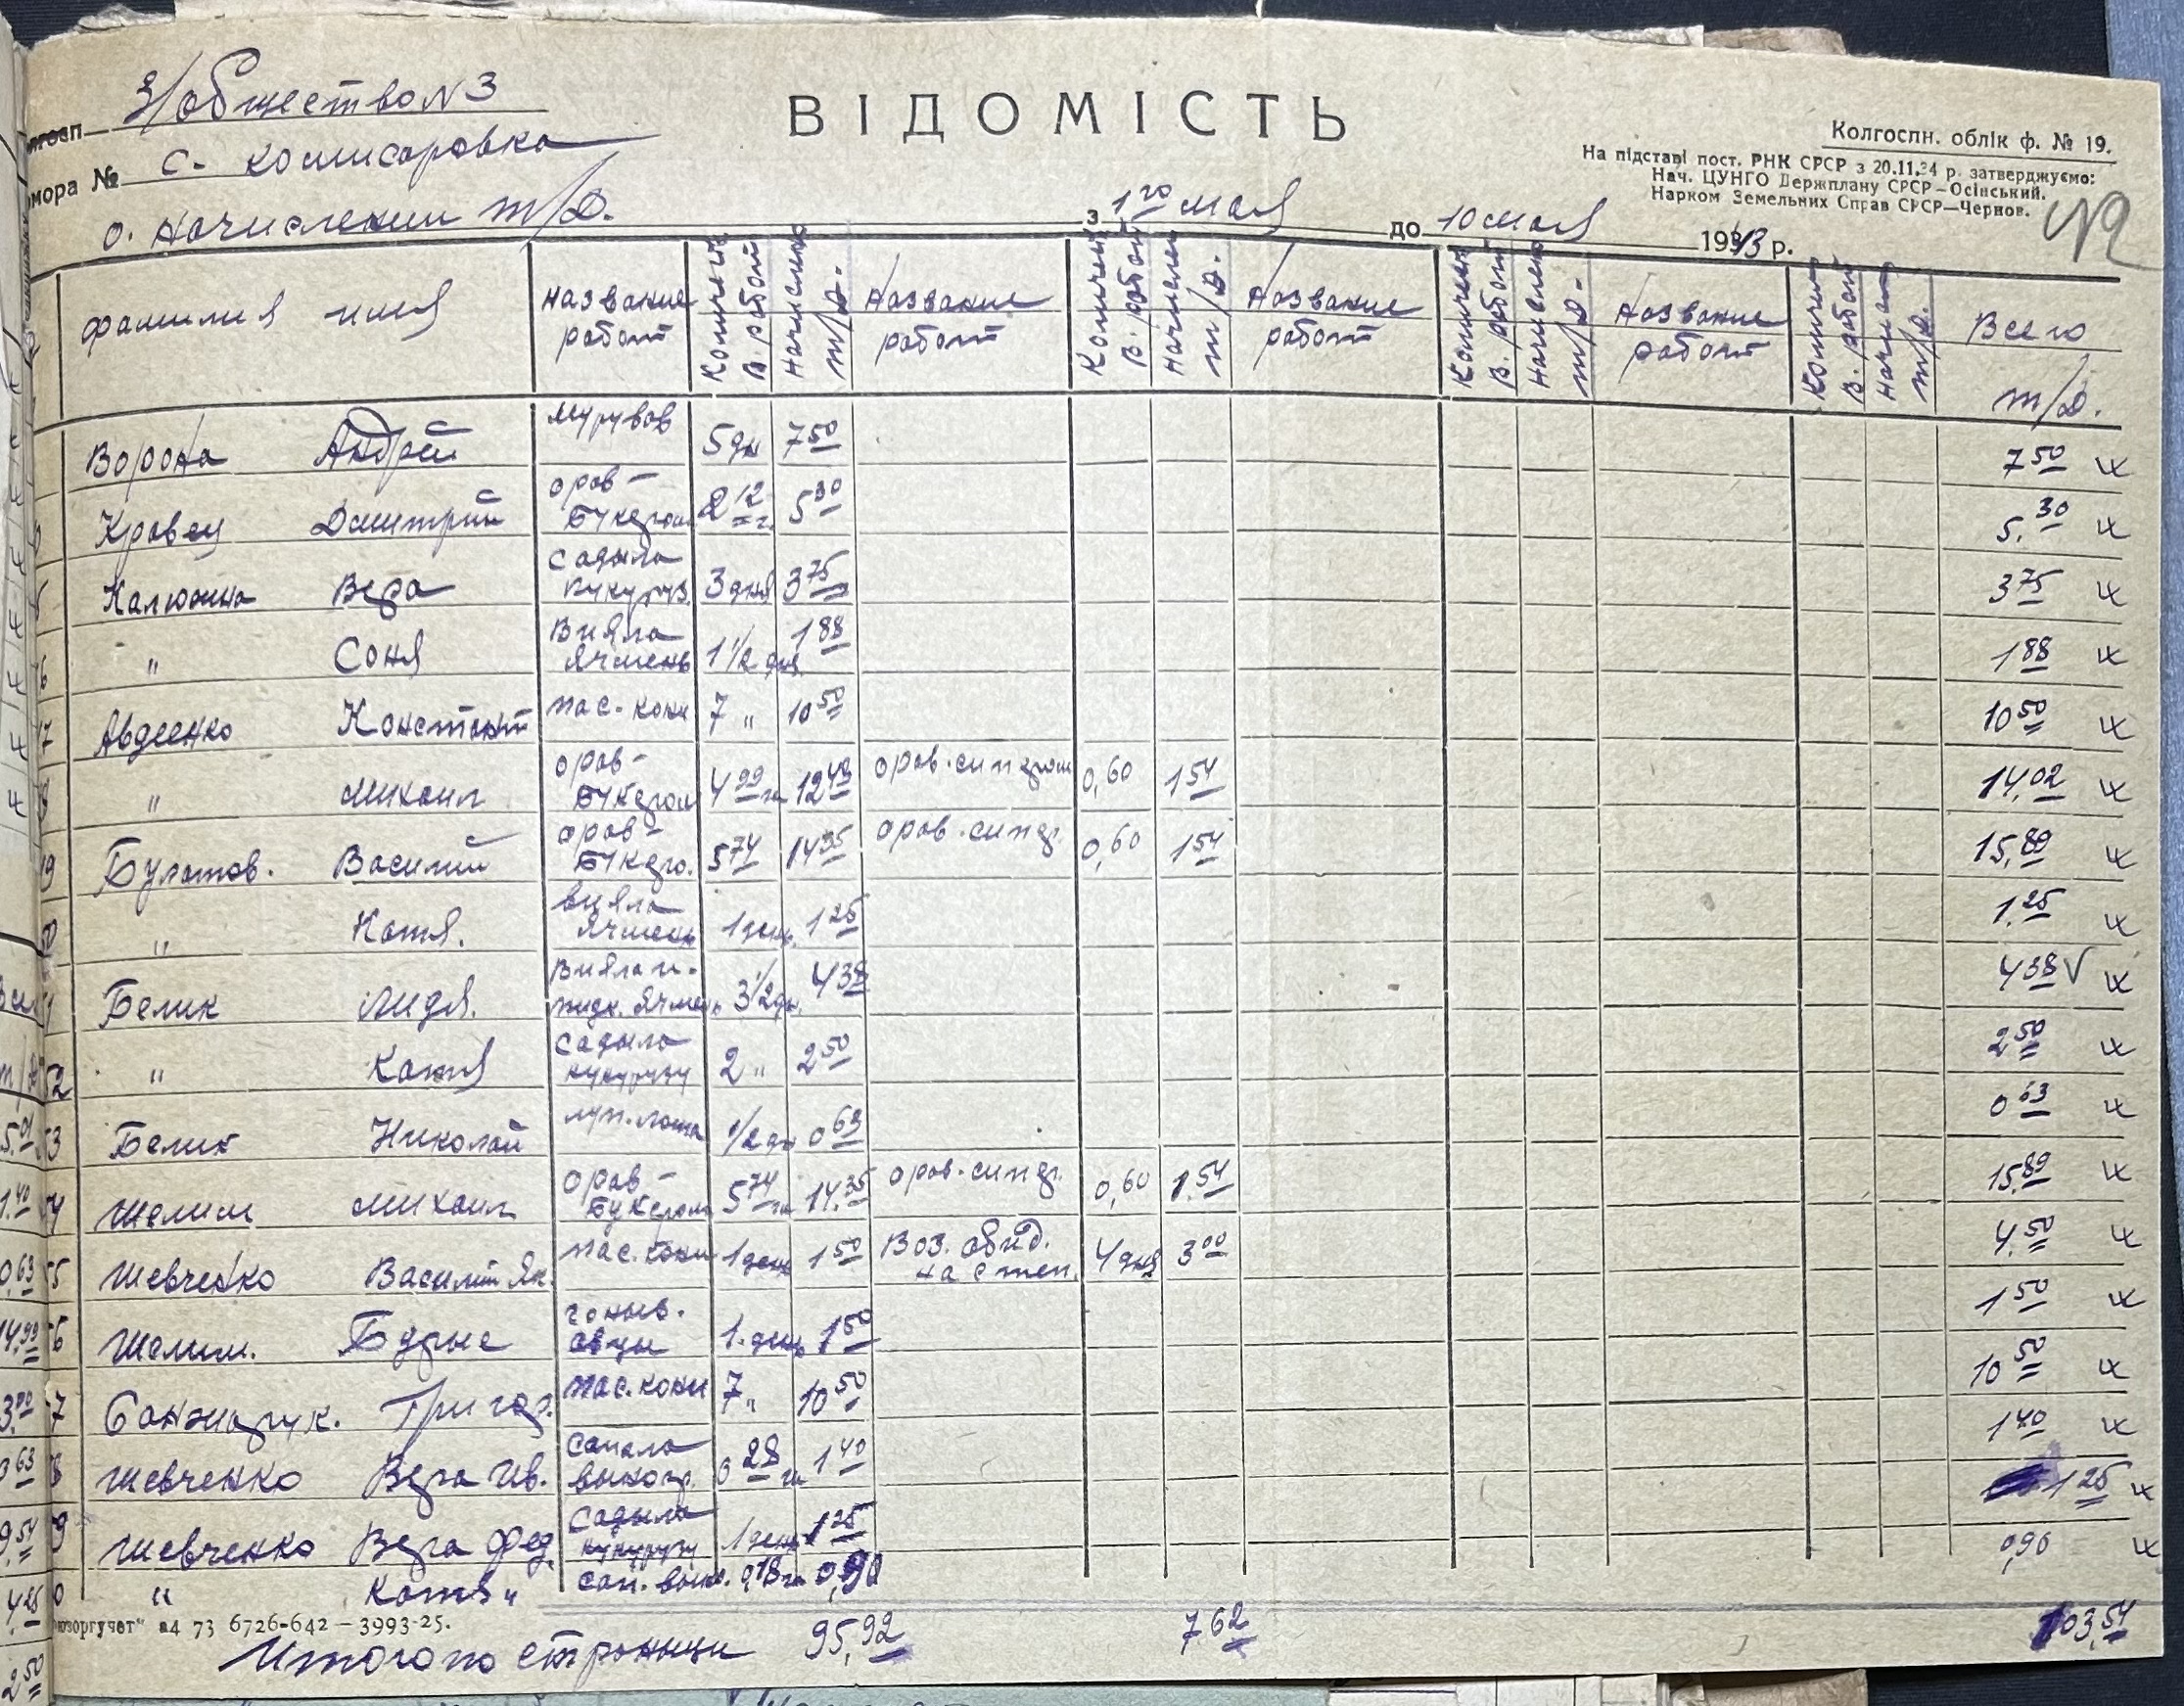 З/общество N 3
ВІДОМІСТЬ
Колгоспн. облік ф. № 19.
На підставі пост. РНК СРСР з 20.11.34 р. затверджуємо:
Нач. ЦУНГО Держплану СРСР—Осінський.
Нарком Земельних Справ СРСР—Чернов.
N2
мора № с. комисаровка
о. начислении т/д. з 1го мая до 10 мая 1943 р.
фамилия имя название работ Количест. в. работ начислено т/д. название работ Количест. в. работ начислен т/д. название работ Количест в. работ начислено т/д. название работ Количес в. работ начислен т/д. Всего т/д.
Ворона Андрей 5 дн 7 50 7 50
Кравец Дмитрий орав- букером 2 12 га 5 30 5. 30
Калюжна Вера садыла кукуруз. 3 дня 3 75 3 75
" Соня Вияла Ячмень 1 1/2 дня 1 88 1 88
17 Авдеенко Констант пас. кони 7 " 10 50 10 50
18 " Михаил орав- букером 4 99 га 12 48 орав. сипдром 0,60 1 54 14,02
19 Булатов. Василий орав- букеро. 5 74 14 35 орав. сипдр. 0,60 1 54 15,89
50 " Катя. вияла Ячмень 1 день 1 25 1.25
51 Белик Лидя. Вияла и. Ячмень 3 1/2 дн. 4 38 4 38 V
52 " Катя садыла кукурузу 2 " 2 50 2 50
53 Белик Николай 1/2 дн 0 63 0 63
54 Шелим Михаил орав- букером 5 74 га 14.35 орав. сипдр. 0,60 1.54 15.89
55 Шевченко Василий Як. пас. кони 1 день 1 50 Воз. обид. на степ. 4 дня 3 00 4.50
56 Шелим. гоныв. овцы 1. день 1 50 1 50
57 Григор. пас. кони 7 " 10 50 10 50
58 Шевченко Вера Ив. сапала виногр. 0 28 га 1 40 1 40
59 Шевченко Вера Фед. садыла кукурузу 1 день 1 25 1 25
60 " Катя " сап. вино. 0,18 га 0,90 0,90
юзоргучет" а4 73 6726-642—3993-25.
Итого по страници 95,92 7 62 103,54